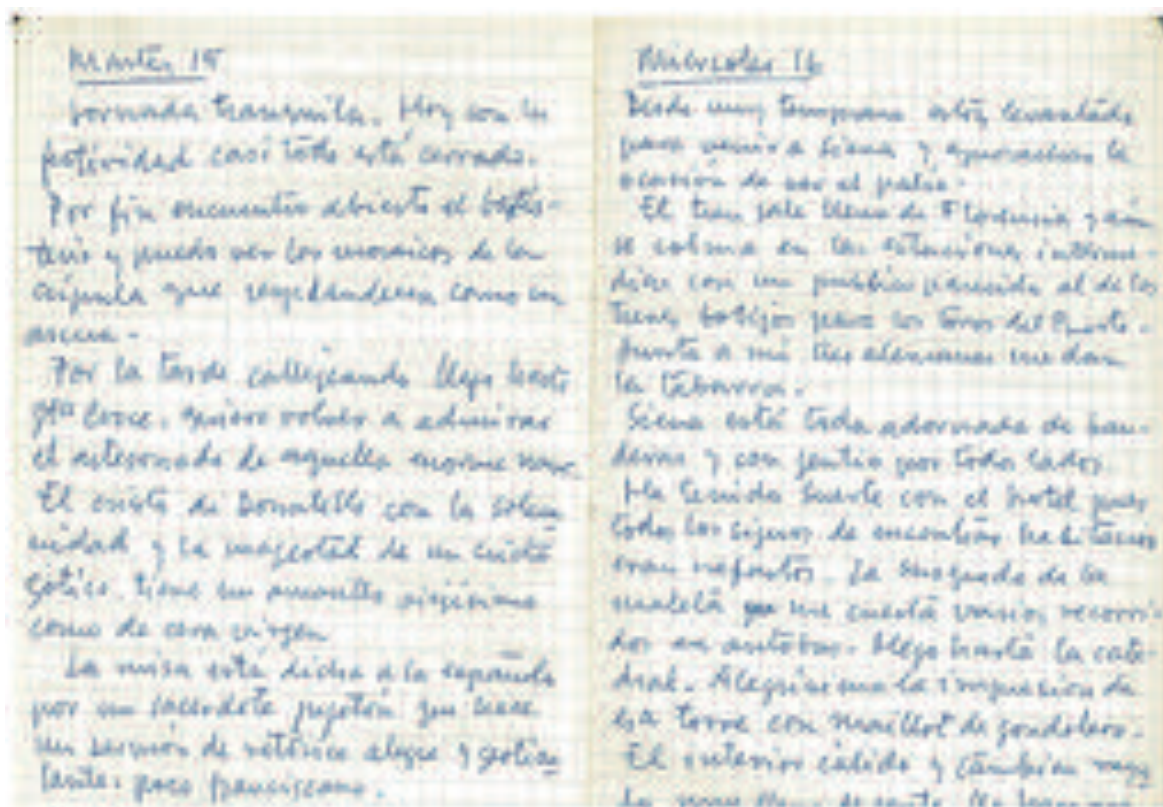 Martes 15
Jornada tranquila. Hoy con la
festividad casi todo está cerrado.
Por fin encuentro abierto el baptis-
terio y puedo ver los mosaicos de la
cúpula que resplandecen como un
ascua.
Por la tarde callejeando llego hasta
Sta Croce. quiero volver a admirar
el artesonado de aquella enorme nave.
El cristo di Donatello con la solem
nidad y la majestad de un cristo
gótico. tiene un amarillo
como de cera virgen
La misa está dicha a la española
por un sacerdote que hace
un sermón de retórica alegre y
tante. poco franciscano.
Miercoles 16
Desde muy temprano estoy levantado
para venir a Siena y aprovechar la
ocasión de ver el palio.
El tren sale lleno de Florencia y aún
se colma en las estaciones interme-
dias con un publico parecido al de los
trenes botijos para los toros del Puerto.
Junto a mi tres alemanes me dan
la tabarra.
Siena está toda adornada de ban-
deras y con gentio por todos lados.
He tenido suerte con el hotel pues
todos los signos de encontrar habitacion
eran nefastos. La busqueda de la
maleta me cuesta varios recorri-
dos en autobus. Llego hasta la cate-
dral. Alegrisima la impresion de
esa torre con maillot de gondolero.
El interior calido y tambien